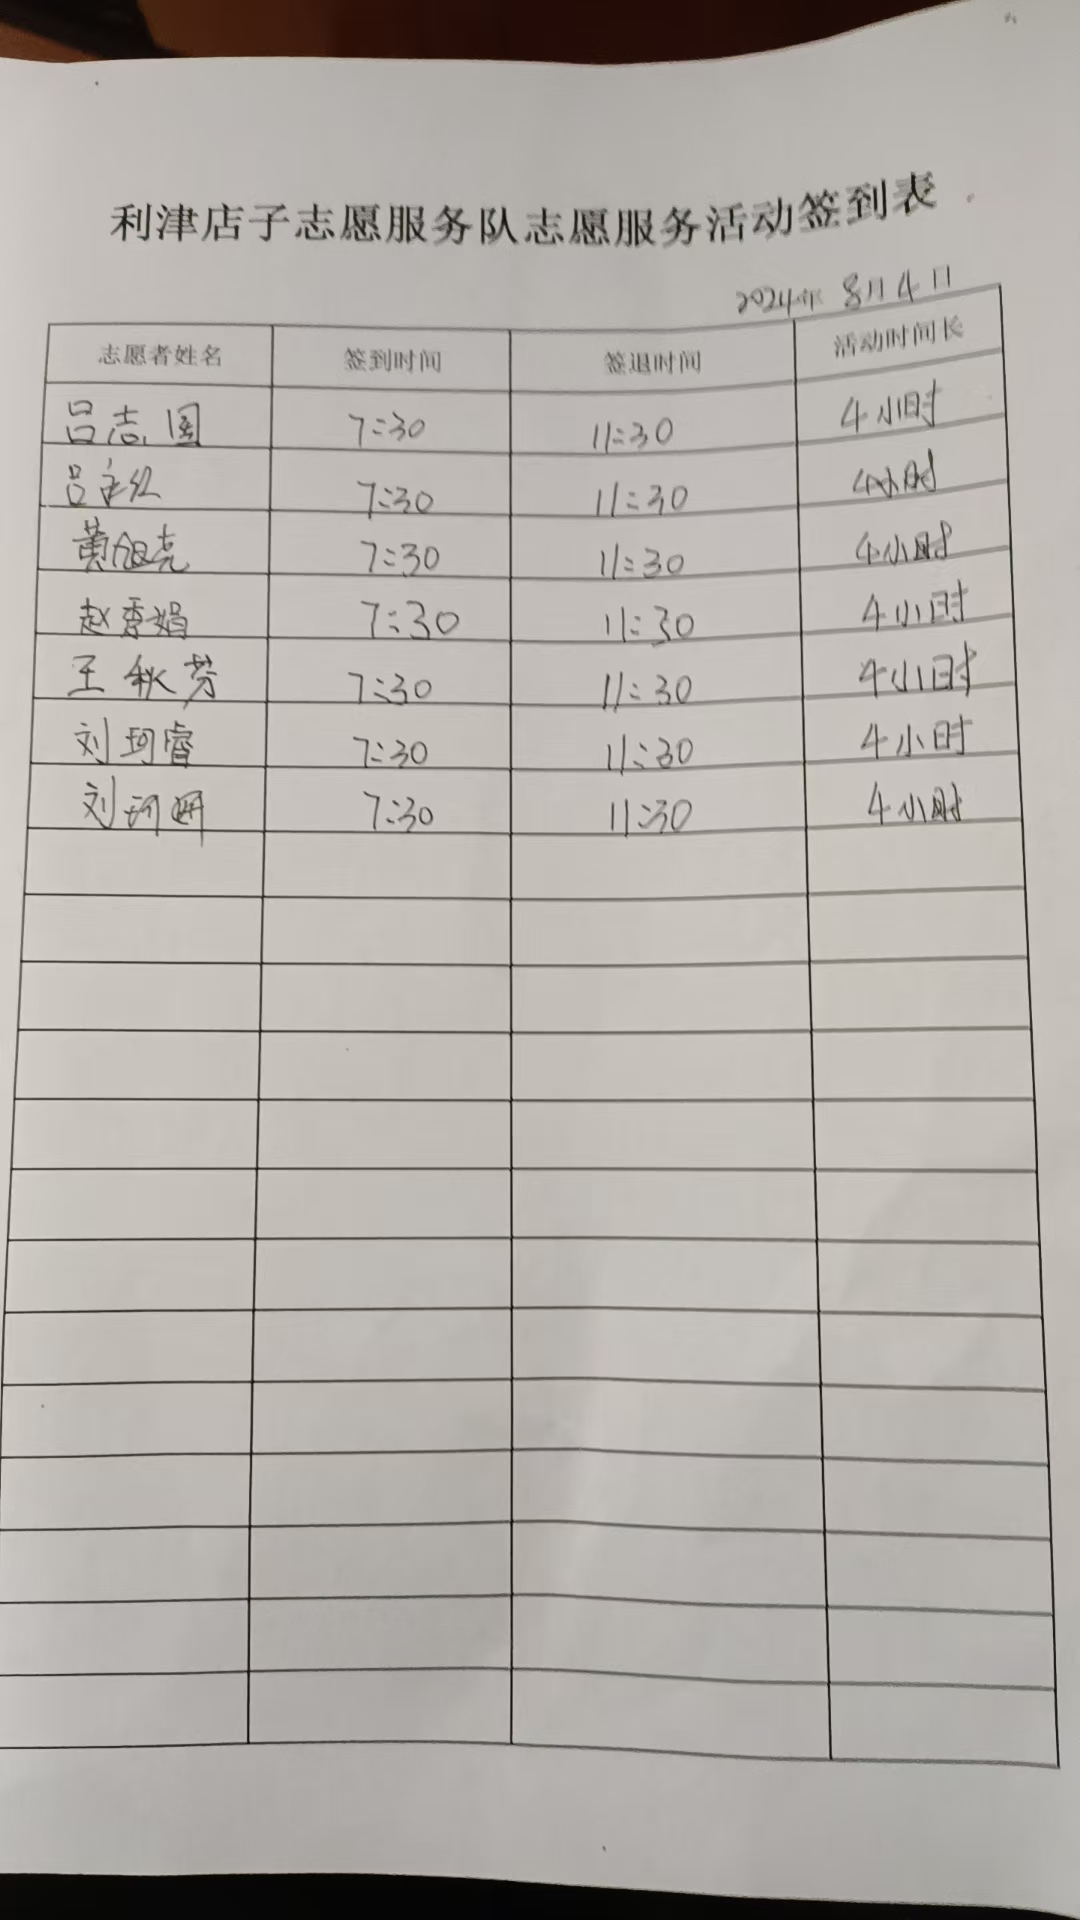 利津店子志愿服务队志愿服务活动签到表
2024年 8月4日
志愿者姓名 签到时间 签退时间 活动时间长
吕志国 7:30 11:30 4小时
吕 红 7:30 11:30 4小时
黄 亮 7:30 11:30 4小时
赵秀娟 7:30 11:30 4小时
王秋芳 7:30 11:30 4小时
刘珂睿 7:30 11:30 4小时
刘珂妍 7:30 11:30 4小时